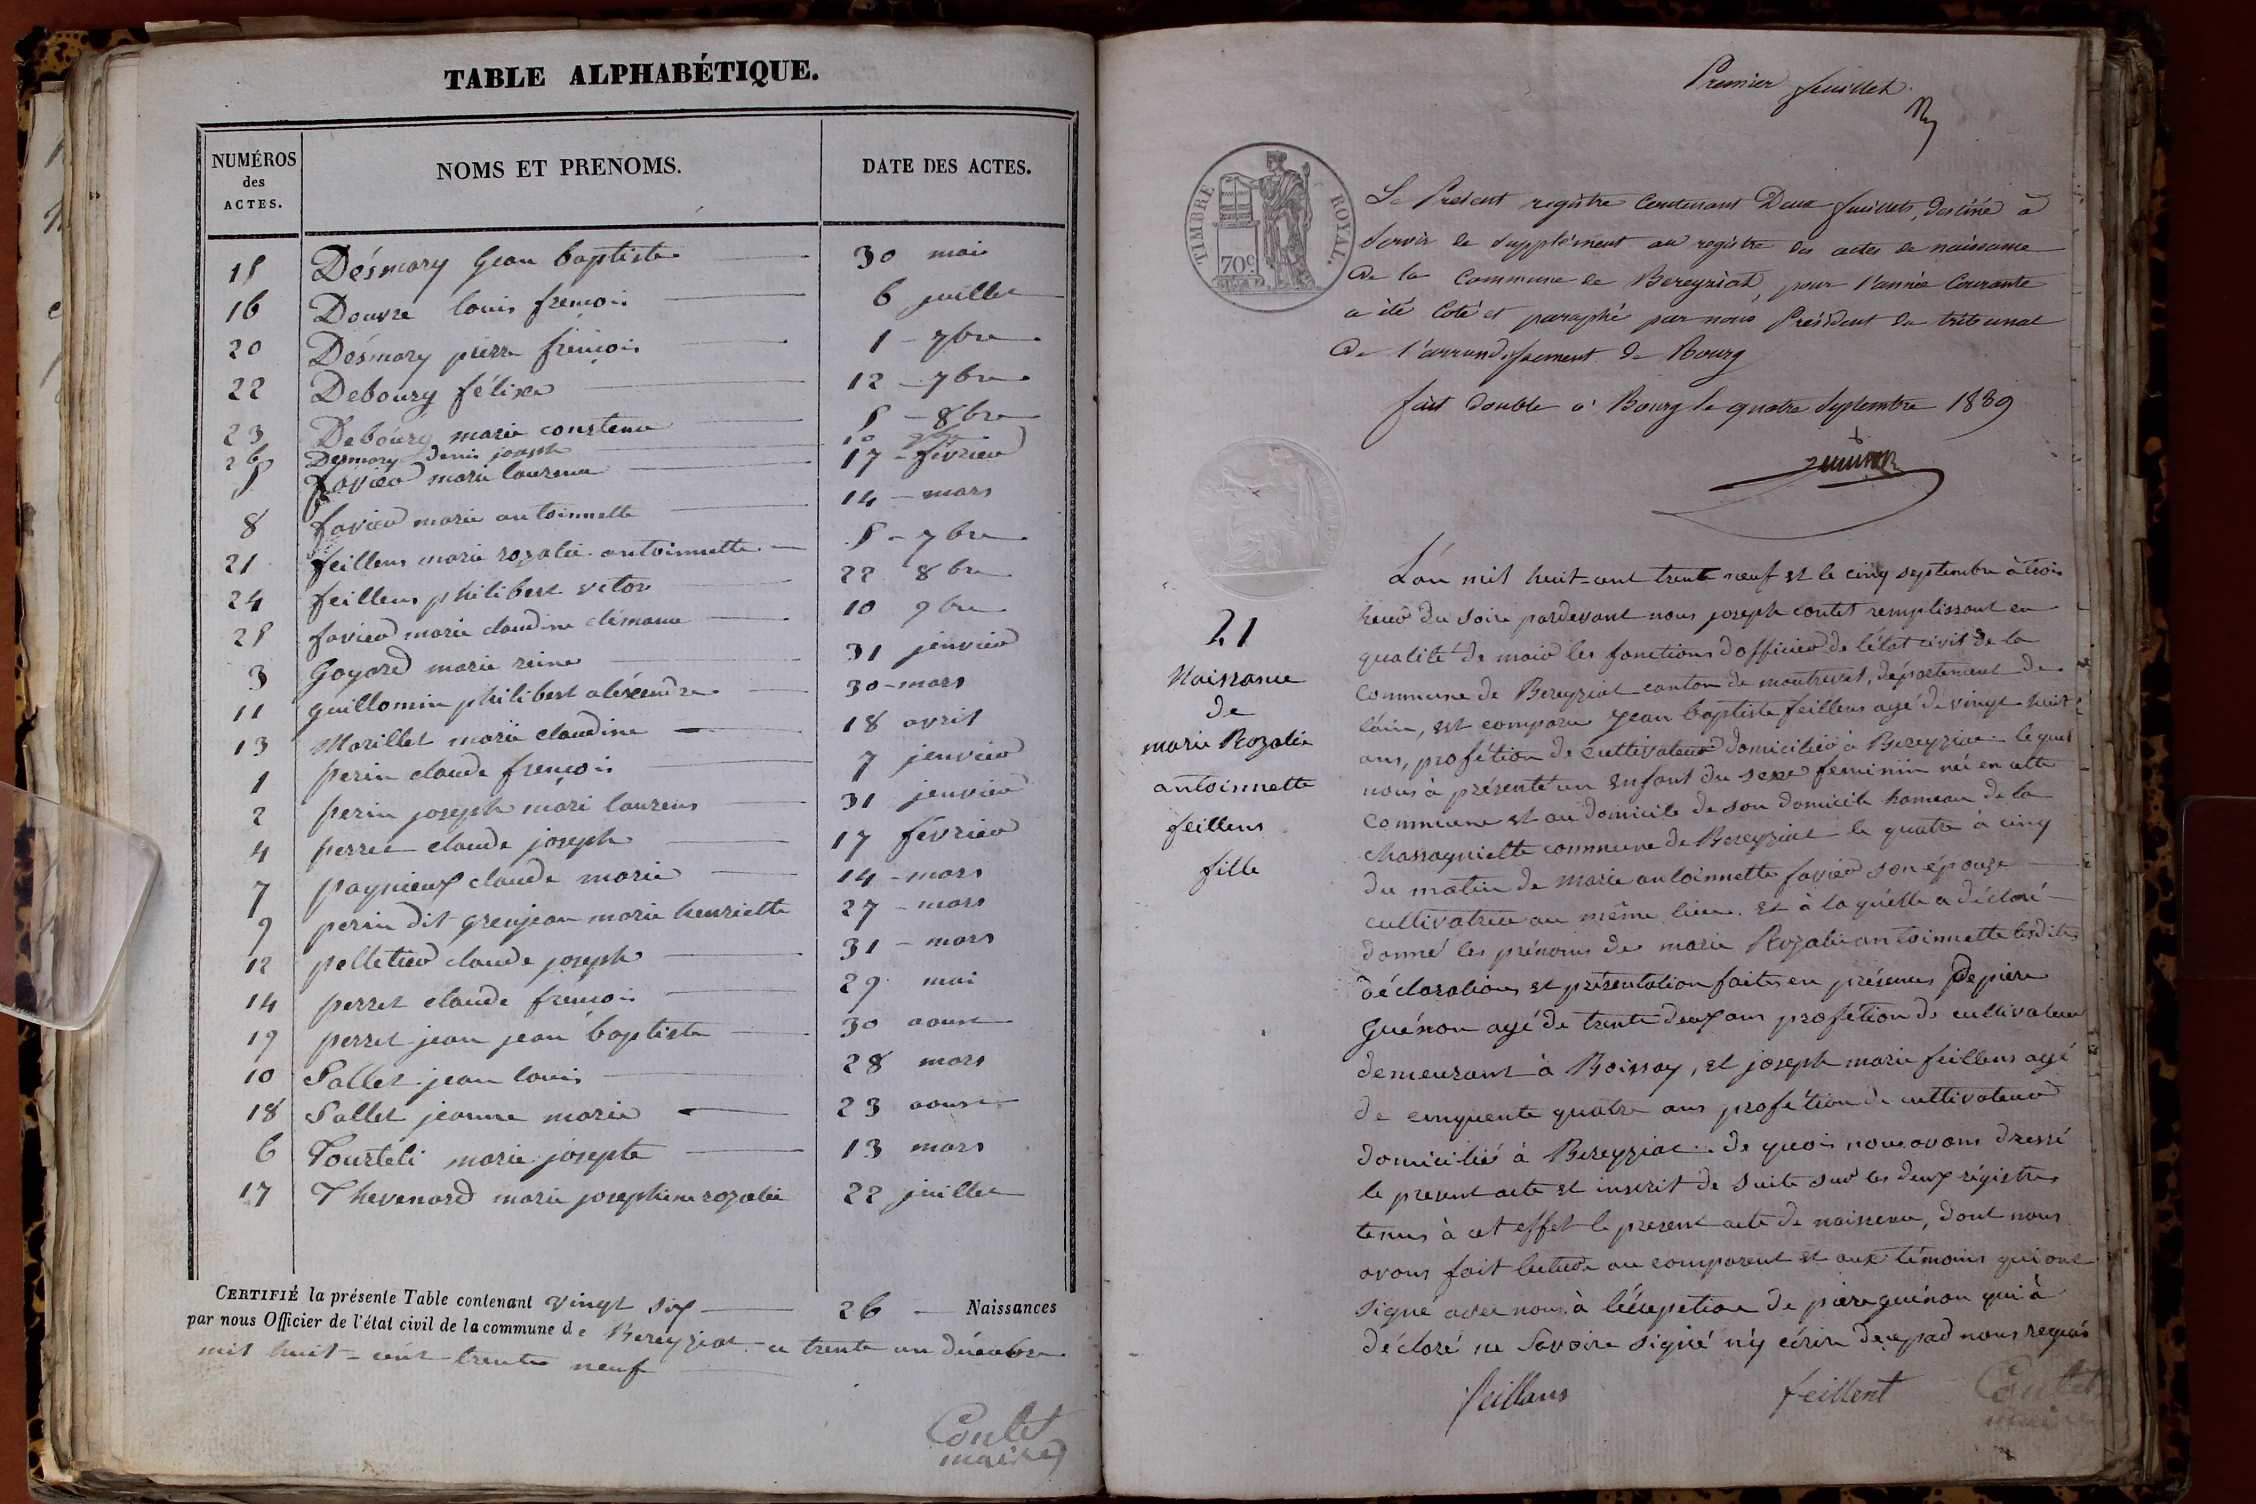 TABLE ALPHABÉTIQUE.
NUMÉROS des ACTES. NOMS ET PRENOMS. DATE DES ACTES.
15 Désmary Jean baptiste 30 mai
16 Douvre louis frençois 6 juillet
20 Désmary pierre frençois 1 - 7bre
22 Deboury félixe 12 - 7bre
23 Deboury marie constence 5 - 8bre
26 Desmary denis joseph 10
5 favier marie laurence 17 - février
8 favier marie antoinnette 14 - mars
21 feillens marie rozalie antoinnette 5 - 7bre
24 feillens philibert victor 22 8bre
25 favier marie claudine clémance 10 9bre
3 Goyard marie reine 31 jenvier
11 guillomin philibert aléxendre 30 - mars
13 Morillet marie claudine 18 avril
1 perin claude frençois 7 jenvier
2 perin joseph mari laurens 31 jenvier
4 perret claude joseph 17 février
7 pagnieux claude marie 14 - mars
9 perin dit grenjean marie henriette 27 - mars
12 pelletier claude joseph 31 - mars
14 perret claude frençois 29 mai
19 perret jean jean baptiste 30 aoust
10 Sallet jean louis 28 mars
18 Sallet jeanne marie 23 aoust
6 Tourteli marie josepte 13 mars
17 Thevenard marie josephine rozalie 22 juillet
CERTIFIÉ la présente Table contenant vingt six 26 Naissances
par nous Officier de l'état civil de la commune de Bereyziat ce trente un décembre
mil huit-cent-trente neuf
Coulet
maire
Premier feuillet.
TIMBRE ROYAL.
70c
Le Présent registre Contenant Deux feuillets, destiné à
Servir de Supplément au registre des actes de naissance
De la Commune de Bereyziat, pour l'année Courante
a été Coté et paraphé par nous Président du tribunal
De l'arrondissement de Bourg
fait double à Bourg le quatre Septembre 1839
21
Naissance
de
marie Rozalie
antoinnette
feillens
fille
L'an mil huit-cent trente neuf et le cinq septembre à trois
heur du soire pardevant nous joseph coulet remplissant en
qualité de mair les fonctions d'officier de l'état civil de la
commune de Bereyziat canton de montrevel, département de
l'ain, est comparu Jean baptiste feillens agé de vingt huit
ans, profétion de cultivateur domicilié à Bereyziat lequel
nous à présenté un enfant du sexe feminin né en cette
commune et au domicile de son domicile hameau de la
Chassagniette commune de Bereyziat le quatre à cinq
du matin de marie antoinnette favier son épouze
cultivatrice au même lieu. et à laquelle a déclaré
donné les prénoms de marie Rozalie antoinnette lesdites
déclarations et présentation faites en présence de piere
Guénon agé de trente deux ans profétion de cultivateur
demeurant à Boissay, et joseph marie feillens agé
de cinquente quatre ans profétion de cultivateur
domicilié à Bereyziat. de quoi nous avons dressé
le present acte et inscrit de suite sur les deux régistres
tenus à cet effet le present acte de naissence, dont nous
avons fait lecture au comparent et aux témoins qui ont
signé avec nous à l'éxepetion de piere guénon qui à
déclaré ne savoire signé n'y écrire de ce par nous requis
feillans feillent Coulet
maire